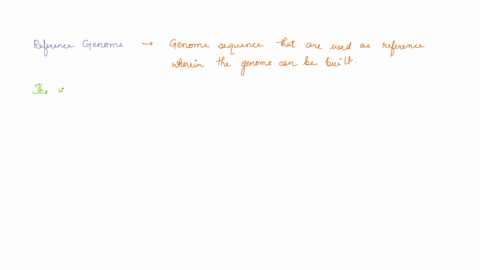 Reference Genome → Genome sequence that are used as reference
wherein the genome can be built.
The